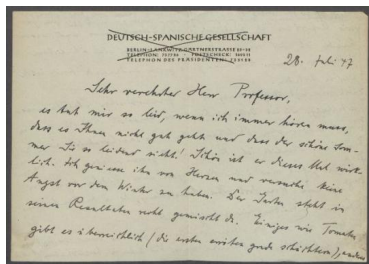 DEUTSCH-SPANISCHE GESELLSCHAFT
BERLIN-LANKWITZ GÄRTNERSTRASSE
TELEPHON DES PRÄSIDENTEN:
28. Juli 47
Sehr verehrter Herr Professor,
es tut mir so leid, wenn ich immer hören muss,
dass es Ihnen nicht gut geht und dass der schöne Som-
mer Sie so leidend sieht! Schön ist er dieses Mal wirk-
lich. Ich geniesse ihn von Herzen und versuche keine
Angst vor dem Winter zu haben. Der Garten steht in
seinen Resultaten recht gemischt da. Einiges wie Tomaten
gibt es überreichlich (die ersten werden grade schüchtern), andres